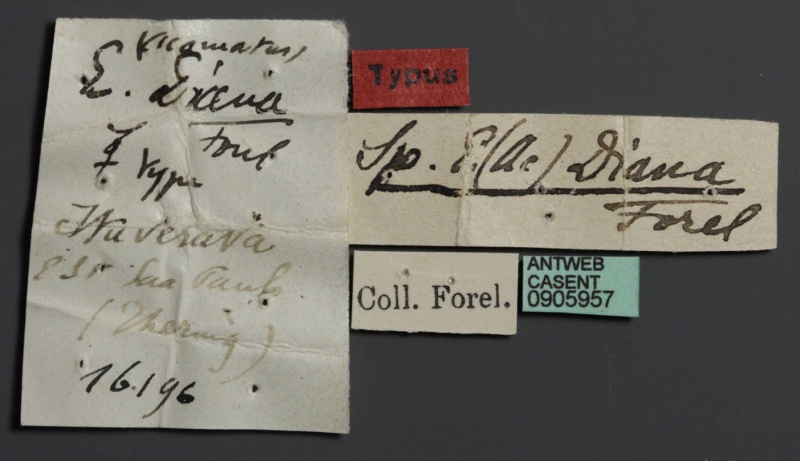 E. Diana
Forel
☿ Type
Ituverava
Est Sao Paulo
(Ihering)
16.196
Typus
Sp. E. (Ac) Diana
Forel
Coll. Forel.
ANTWEB
CASENT
0905957